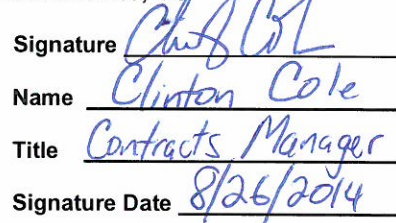 Signature
Name Clinton Cole
Title Contracts Manager
Signature Date 8/26/2014